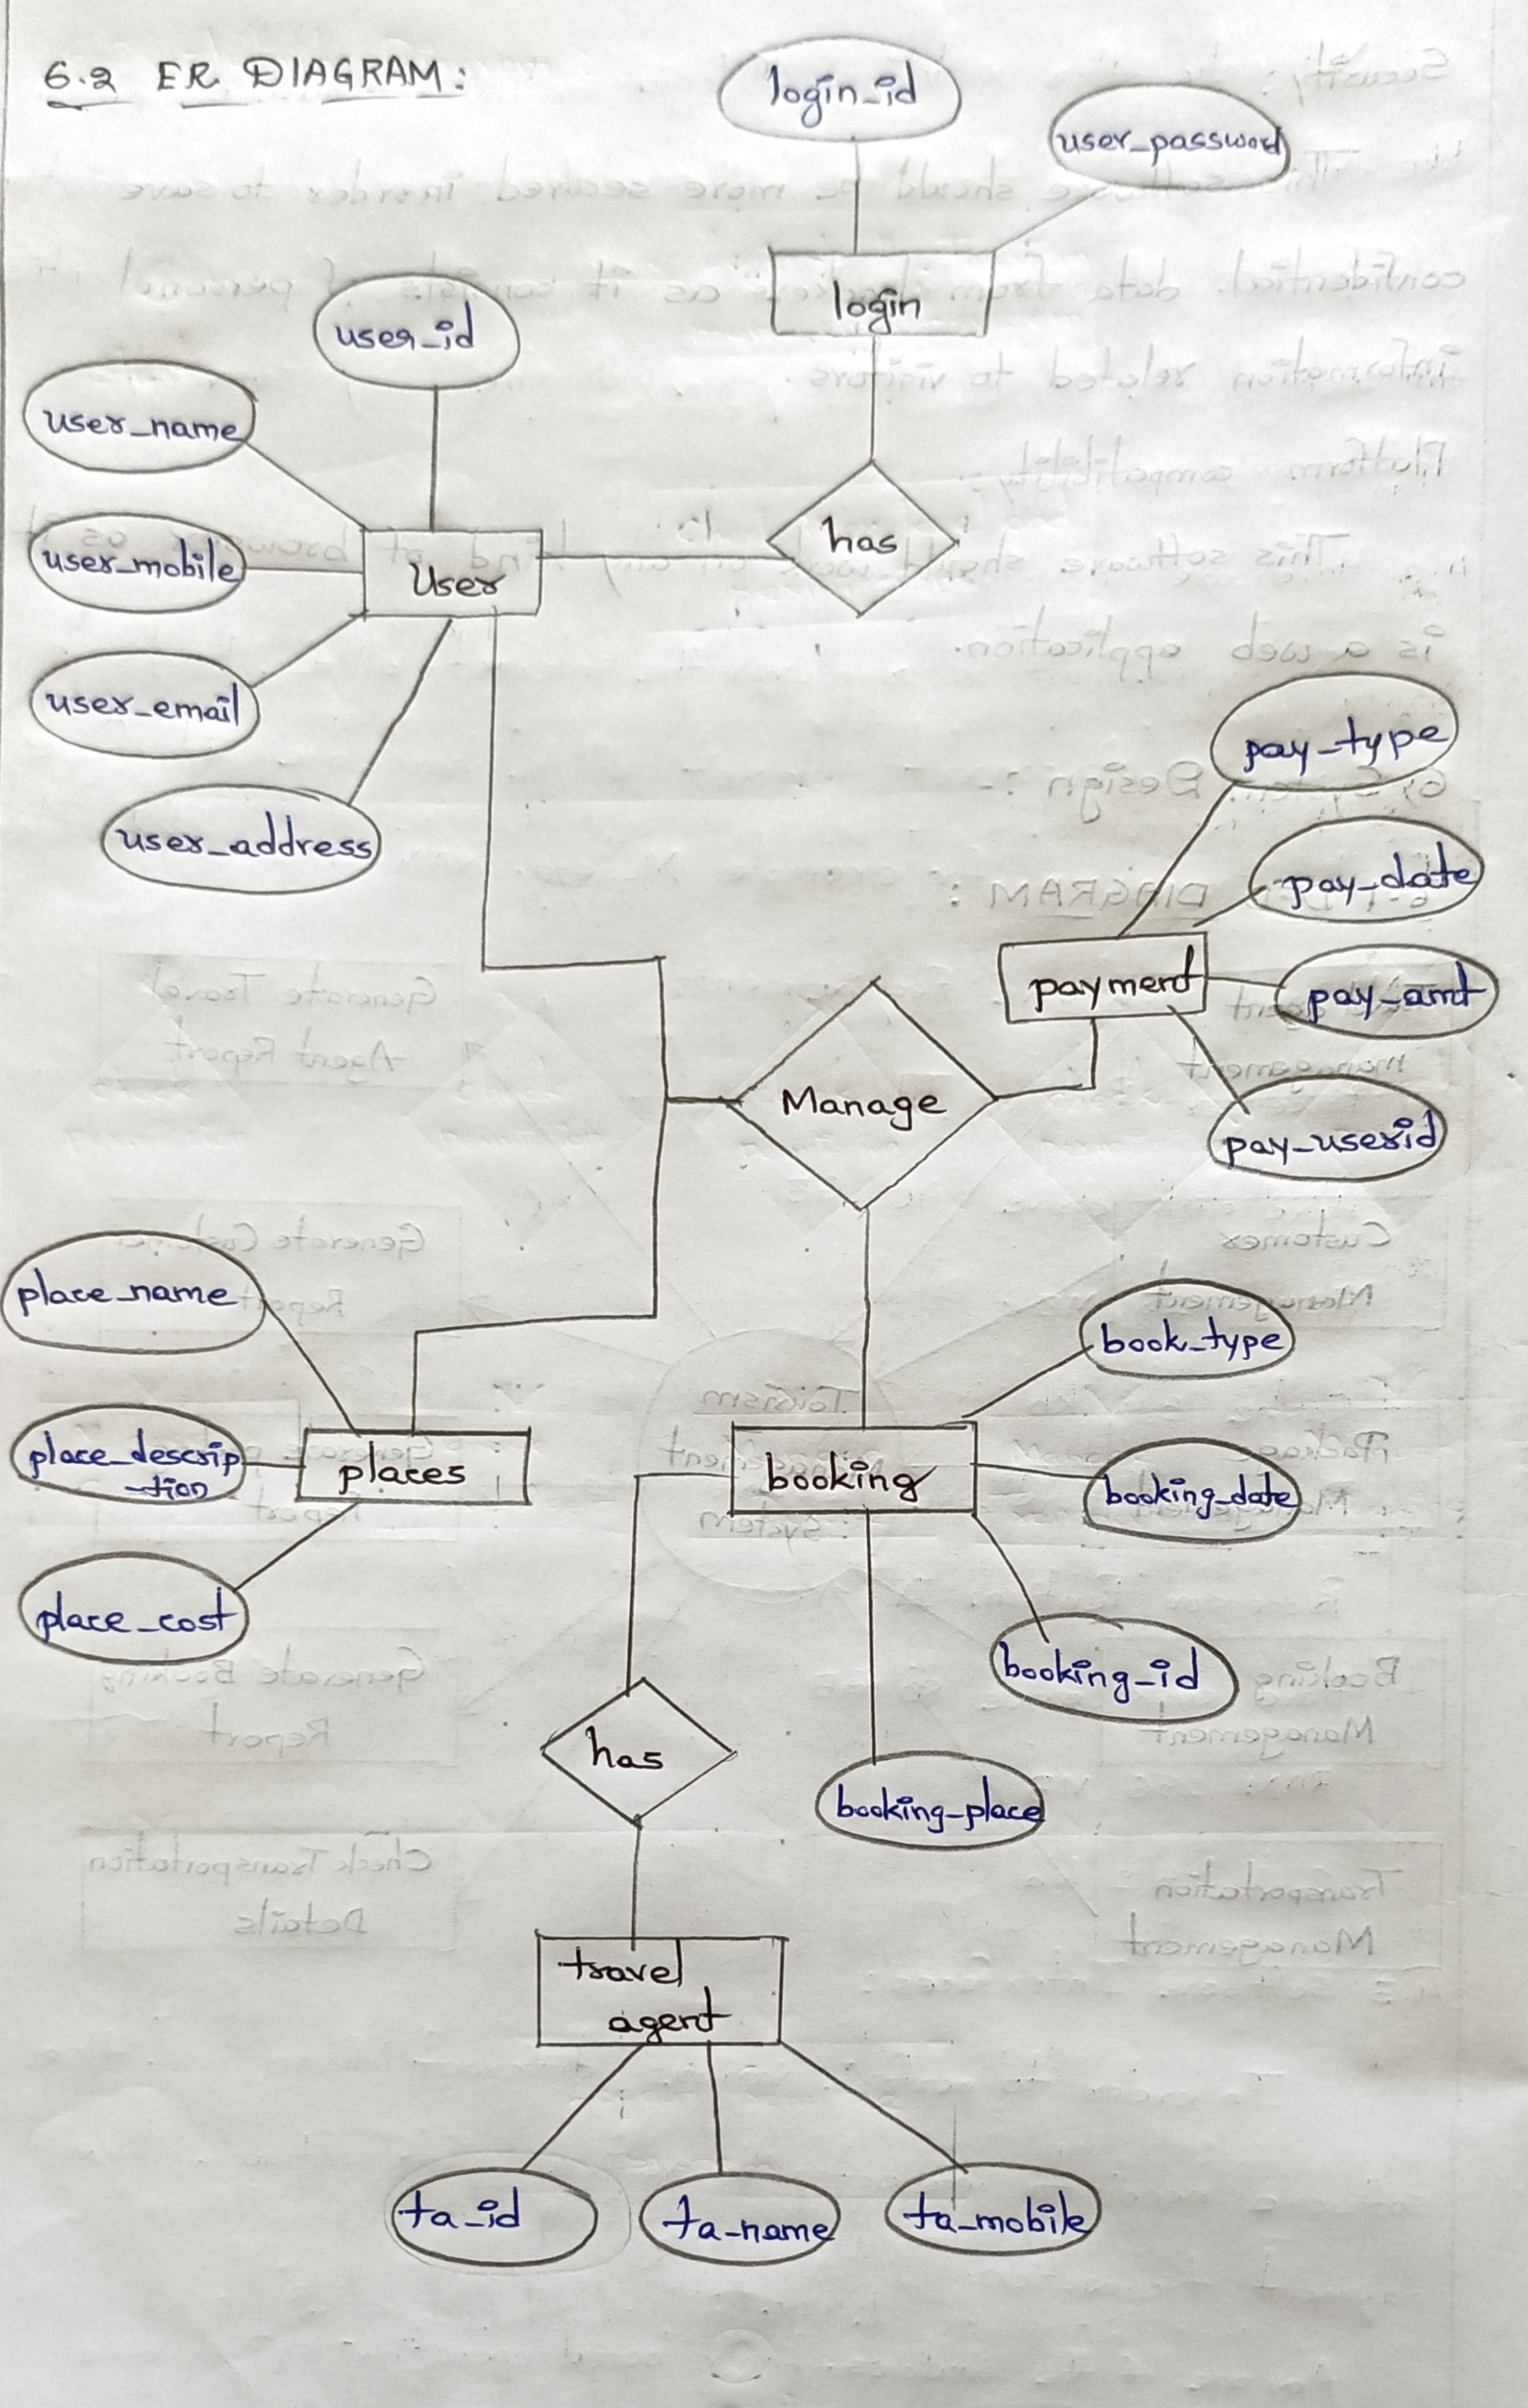 6.2 ER DIAGRAM:
login_id
user_password
login
user_id
user_name
user_mobile
User
has
user_email
user_address
pay_type
pay_date
payment
pay_amt
Manage
pay_userid
place_name
book_type
place_descrip
-tion
places
booking
booking_date
place_cost
booking_id
has
booking_place
travel
agent
ta_id
ta_name
ta_mobile